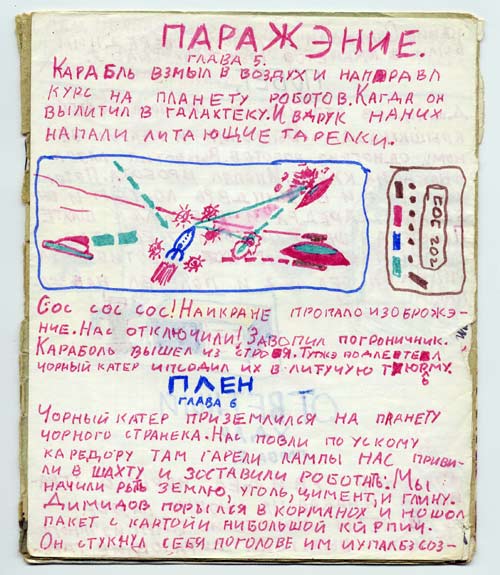 ПАРАЖЭНИЕ.
ГЛАВА 5.
КАРАБЛЬ ВЗМЫЛ В ВОЗДУХ И НАПОРАВЛ
КУРС НА ПЛАНЕТУ РОБОТОВ. КАГДА ОН
ВЫЛИТИЛ В ГАЛАХТЕКУ. И ВДРУК НАНИХ
НАПАЛИ ЛИТАЮЩИЕ ТАРЕЛКИ.
СОС СОС СОС! НАИКРАНЕ ПРОПАЛО ИЗОБРОЖЭ-
НИЕ. НАС ОТКЛЮЧИЛИ! ЗАВОПИЛ ПОГРОНИЧНИК.
КАРАБОЛЬ ВЫШЕЛ ИЗ СТРОЯ.
ЧОРНЫЙ КАТЕР ИПСОДИЛ ИХ В ЛИТУЧУЮ ТЮРМУ.
ПЛЕН
ГЛАВА 6
ЧОРНЫЙ КАТЕР ПРИЗЕМЛИЛСЯ НА ПЛАНЕТУ
ЧОРНОГО СТРАНЕКА. НАС ПОВЛИ ПО УСКОМУ
КАРЕДОРУ ТАМ ГАРЕЛИ ЛАМПЫ НАС ПРИВИ-
ЛИ В ШАХТУ И ЗОСТАВИЛИ РОБОТАТЬ. МЫ
НАЧИЛИ РЫТЬ ЗЕМЛЮ, УГОЛЬ, ЦИМЕНТ, И ГЛИНУ.
ДИМИДОВ ПОРЫЛСЯ В КОРМАНОХ И НОШОЛ
ПАКЕТ С КАРТОЙИ НИБОЛЬШОЙ КИРПИЧ.
ОН СТУКНУЛ СЕБЯ ПОГОЛОВЕ ИМ ИУПАЛБЗСОЗ-